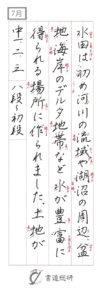 7月
水田は初め河川の流域や湖沼の周辺、盆
地、海岸のデルタ地帯など水が豊富に
得られる場所に作られました。土地が
中一・二・三 八段〜初段
書道総研